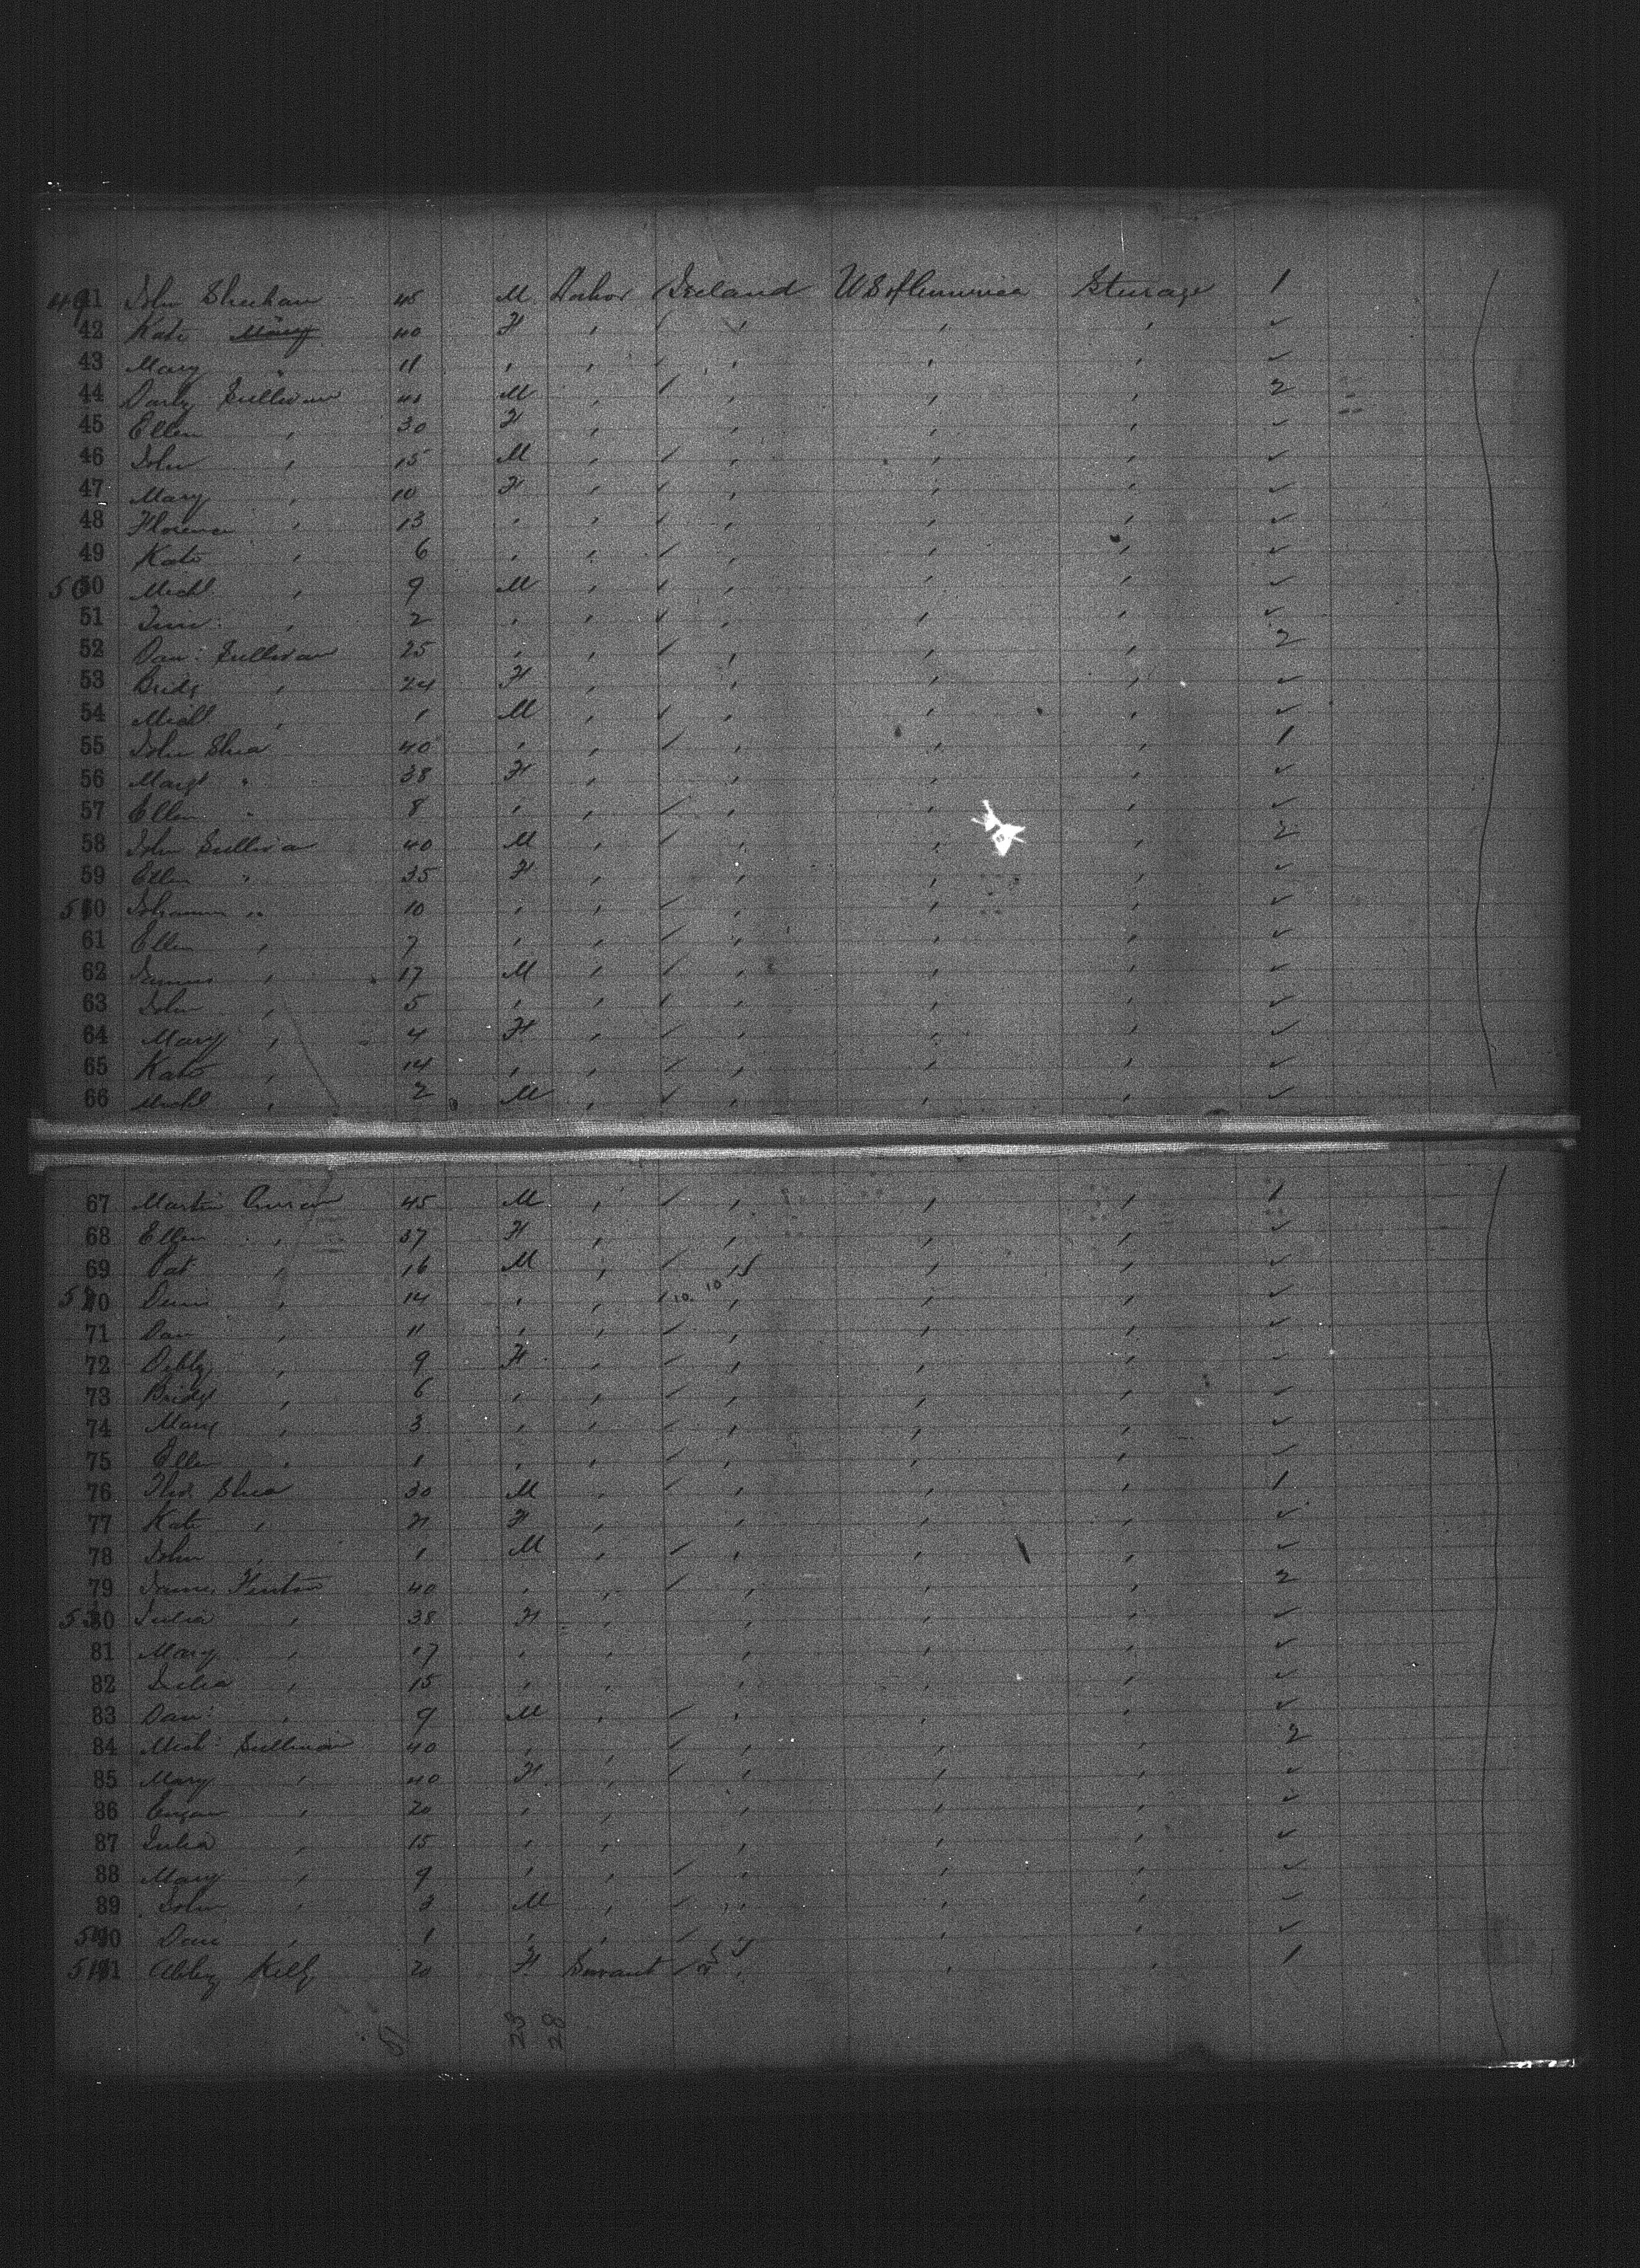 491 John Sheehan 45 M Labor / Ireland U S of America Steerage 1
42 Kate Mary 40 F , / , , , ✓
43 Mary " 11 , , / , , , ✓
44 Darby Sullivan 40 M , / , , , 2
45 Ellen , 30 F , , , , ✓
46 John , 15 M , / , , , ✓
47 Mary , 10 F , / , , , ✓
48 Florence , 13 , , / , , , ✓
49 Kate , 6 , , / , , , ✓
50 Michl , 9 M , / , , , ✓
51 Tim: , 2 , , / , , , ✓
52 Dan: Sullivan 25 , , / , , , 2
53 Bridg , 24 F , , , , ✓
54 Michl , 1 M , / , , , ✓
55 John Shea 40 , , / , , , 1
56 Margt " 38 F , , , , ✓
57 Ellen " 8 , , / , , , ✓
58 John Sullivan 40 M , / , , , 2
59 Ellen " 35 F , , , , ✓
510 Johanna " 10 , , / , , , ✓
61 Ellen , 7 , , / , , , ✓
62 James , 17 M , / , , , ✓
63 John , 5 , , / , , , ✓
64 Mary , 4 F , / , , , ✓
65 Kate , 14 , , / , , , ✓
66 Michl , 2 M , / , , , ✓
67 Martin 45 M , / , , , 1
68 Ellen , 37 F , , , , ✓
69 Pat , 16 M , / , , , ✓
520 , 14 , , / 10. 10 , , , ✓
71 Dan , 11 , , / , , , ✓
72 , 9 F , / , , , ✓
73 Bridgt , 6 , , / , , , ✓
74 Mary , 3 , , / , , , ✓
75 Ellen , 1 , , / , , , ✓
76 Shea 30 M , / , , , 1
77 Kate , 21 F , , , , ✓
78 John , 1 M , / , , , ✓
79 James Fenton 40 , , / , , , 2
530 Julia , 38 F , , , , ✓
81 Mary , 17 , , , , , ✓
82 Julia , 15 , , , , , ✓
83 Dan: , 9 M , / , , , ✓
84 Mich: Sullivan 40 , , / , , , 2
85 Mary , 40 F , / , , , ✓
86 , 20 , , , , , ✓
87 Julia , 15 , , , , , ✓
88 Mary , 9 , , / , , , ✓
89 John , 3 M , / , , , ✓
540 Dan , 1 , , / , , , ✓
541 Abby Kelly 20 F Servant / , , , 1
51 23 28